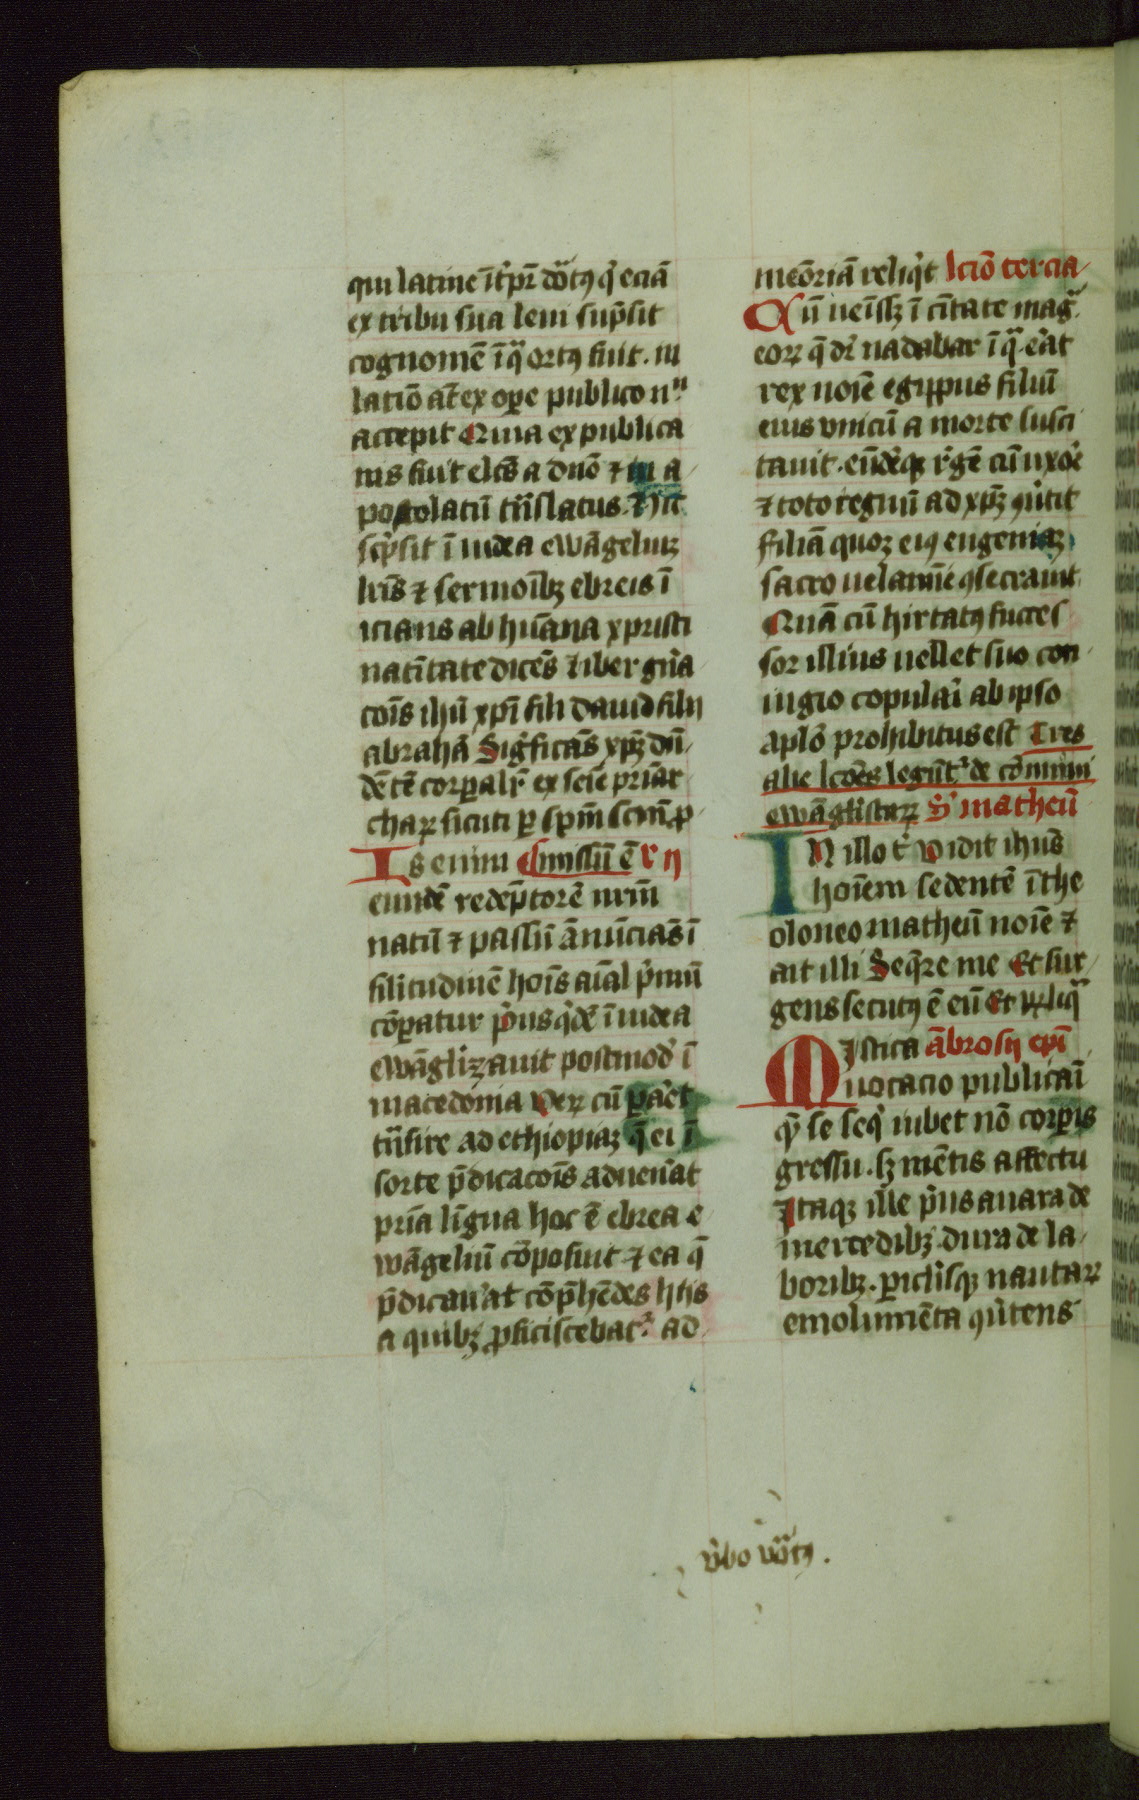 qui latine īt̓pr̄ dōtꝰ q̓ eciā
ex tribu sua leui sūpsit
cognomē ī qͣ ortꝰ fuit . m
latiō at̄ ex oꝑe publico nͥⁱ
accepit Quia ex publica
nis fuit elc̄s a dn̄o ⁊ in a
postolatū trāslatus. Hic
sc̓psit ī iudea ewāgeliuꝫ
lr̄is ⁊ sermoībꝫ ebreis ī
icians ab hūana xpristi
natītate dicēs Liber gn̄a
cōis ihū xp̄i fili dauid filij
abrahā Sig̓ficās xpꝫ dū
dē tē corꝑalr̓ ex seīe priāt
chaꝝ sicuti ꝑ sp̄m scm̄ ꝓ
Is enim Cmissū ē R̄ ij
eundē redēptorē nr̄m
natū ⁊ passū ānūciās ī
silitudinē hoīs aīal p̓mū
cōꝑatur p̓us q̓dē ī iudea
ewāglizauit postmod̓ ī
macedonia Veꝝ cū ꝑac̓t
trāsire ad ethiopiaꝫ q̄ ei ī
sorte p̄dicacōis aduen̓at
pria līgua hoc ē ebrea e
wāgeliū cōposuit ⁊ ea q̄
p̄dicau̓at cōp̄hēdēs lrīs
a quibꝫ ꝓficiscebatᷣ ad
meōriā reliq̓t lctiō tercia
Cū uēissꝫ ī cītate magͣ
eoꝝ q̄ dr̓ nadabar ī qͣ eāt
rex noīe egippus filiū
eius vnicū a morte susci
tauit . eūdēqꝫ r̓gē cū uxōe
⁊ toto regnū ad xpꝫ ꝯūtit
filiā quoꝫ eiꝰ eugeniaꝫ
sacro uelamīe ꝯsecrauit
Quā cū hirtatꝰ succes
sor illius uellet suo con
iugio copulaī ab ipso
aplō prohibitus est Tres
alie lcōes legūtᷣ de cōmuni
ewāglistaꝝ S̓ matheū
IN illo t̓ Vidit ihus̄
hoīem sedentē ī the
oloneo matheū noīe ⁊
ait illi Seq̄re me Et sur
gens secutꝰ ē eū Et reliqͣ
Mistica ābrosij ep̄i
uocacio publicaī
qͦ se seq̓ iubet nō corꝑis
gressu . sꝫ mētis affectu
Itaqꝫ ille p̓us auara de
mercedibꝫ . dura de la
boribꝫ . ꝑiclisqꝫ nautaꝝ
emolumēta ꝯūtens
v̓bo vōcꝰ .